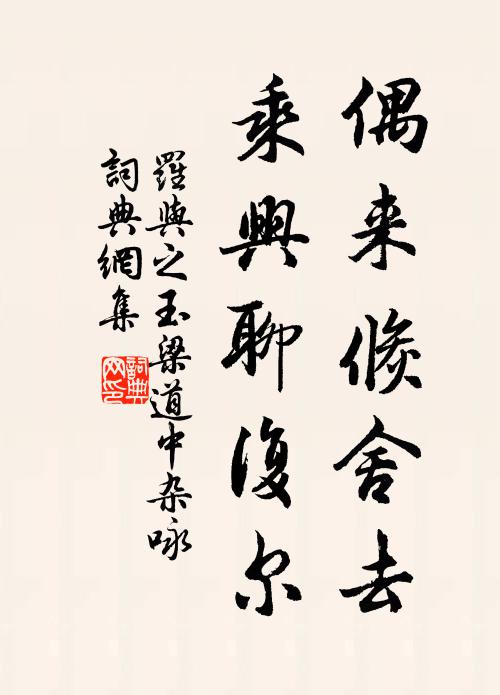 偶来倐舍去
乘興聊復尔
羅與之玉梁道中杂咏
詞典網集
詞典網印